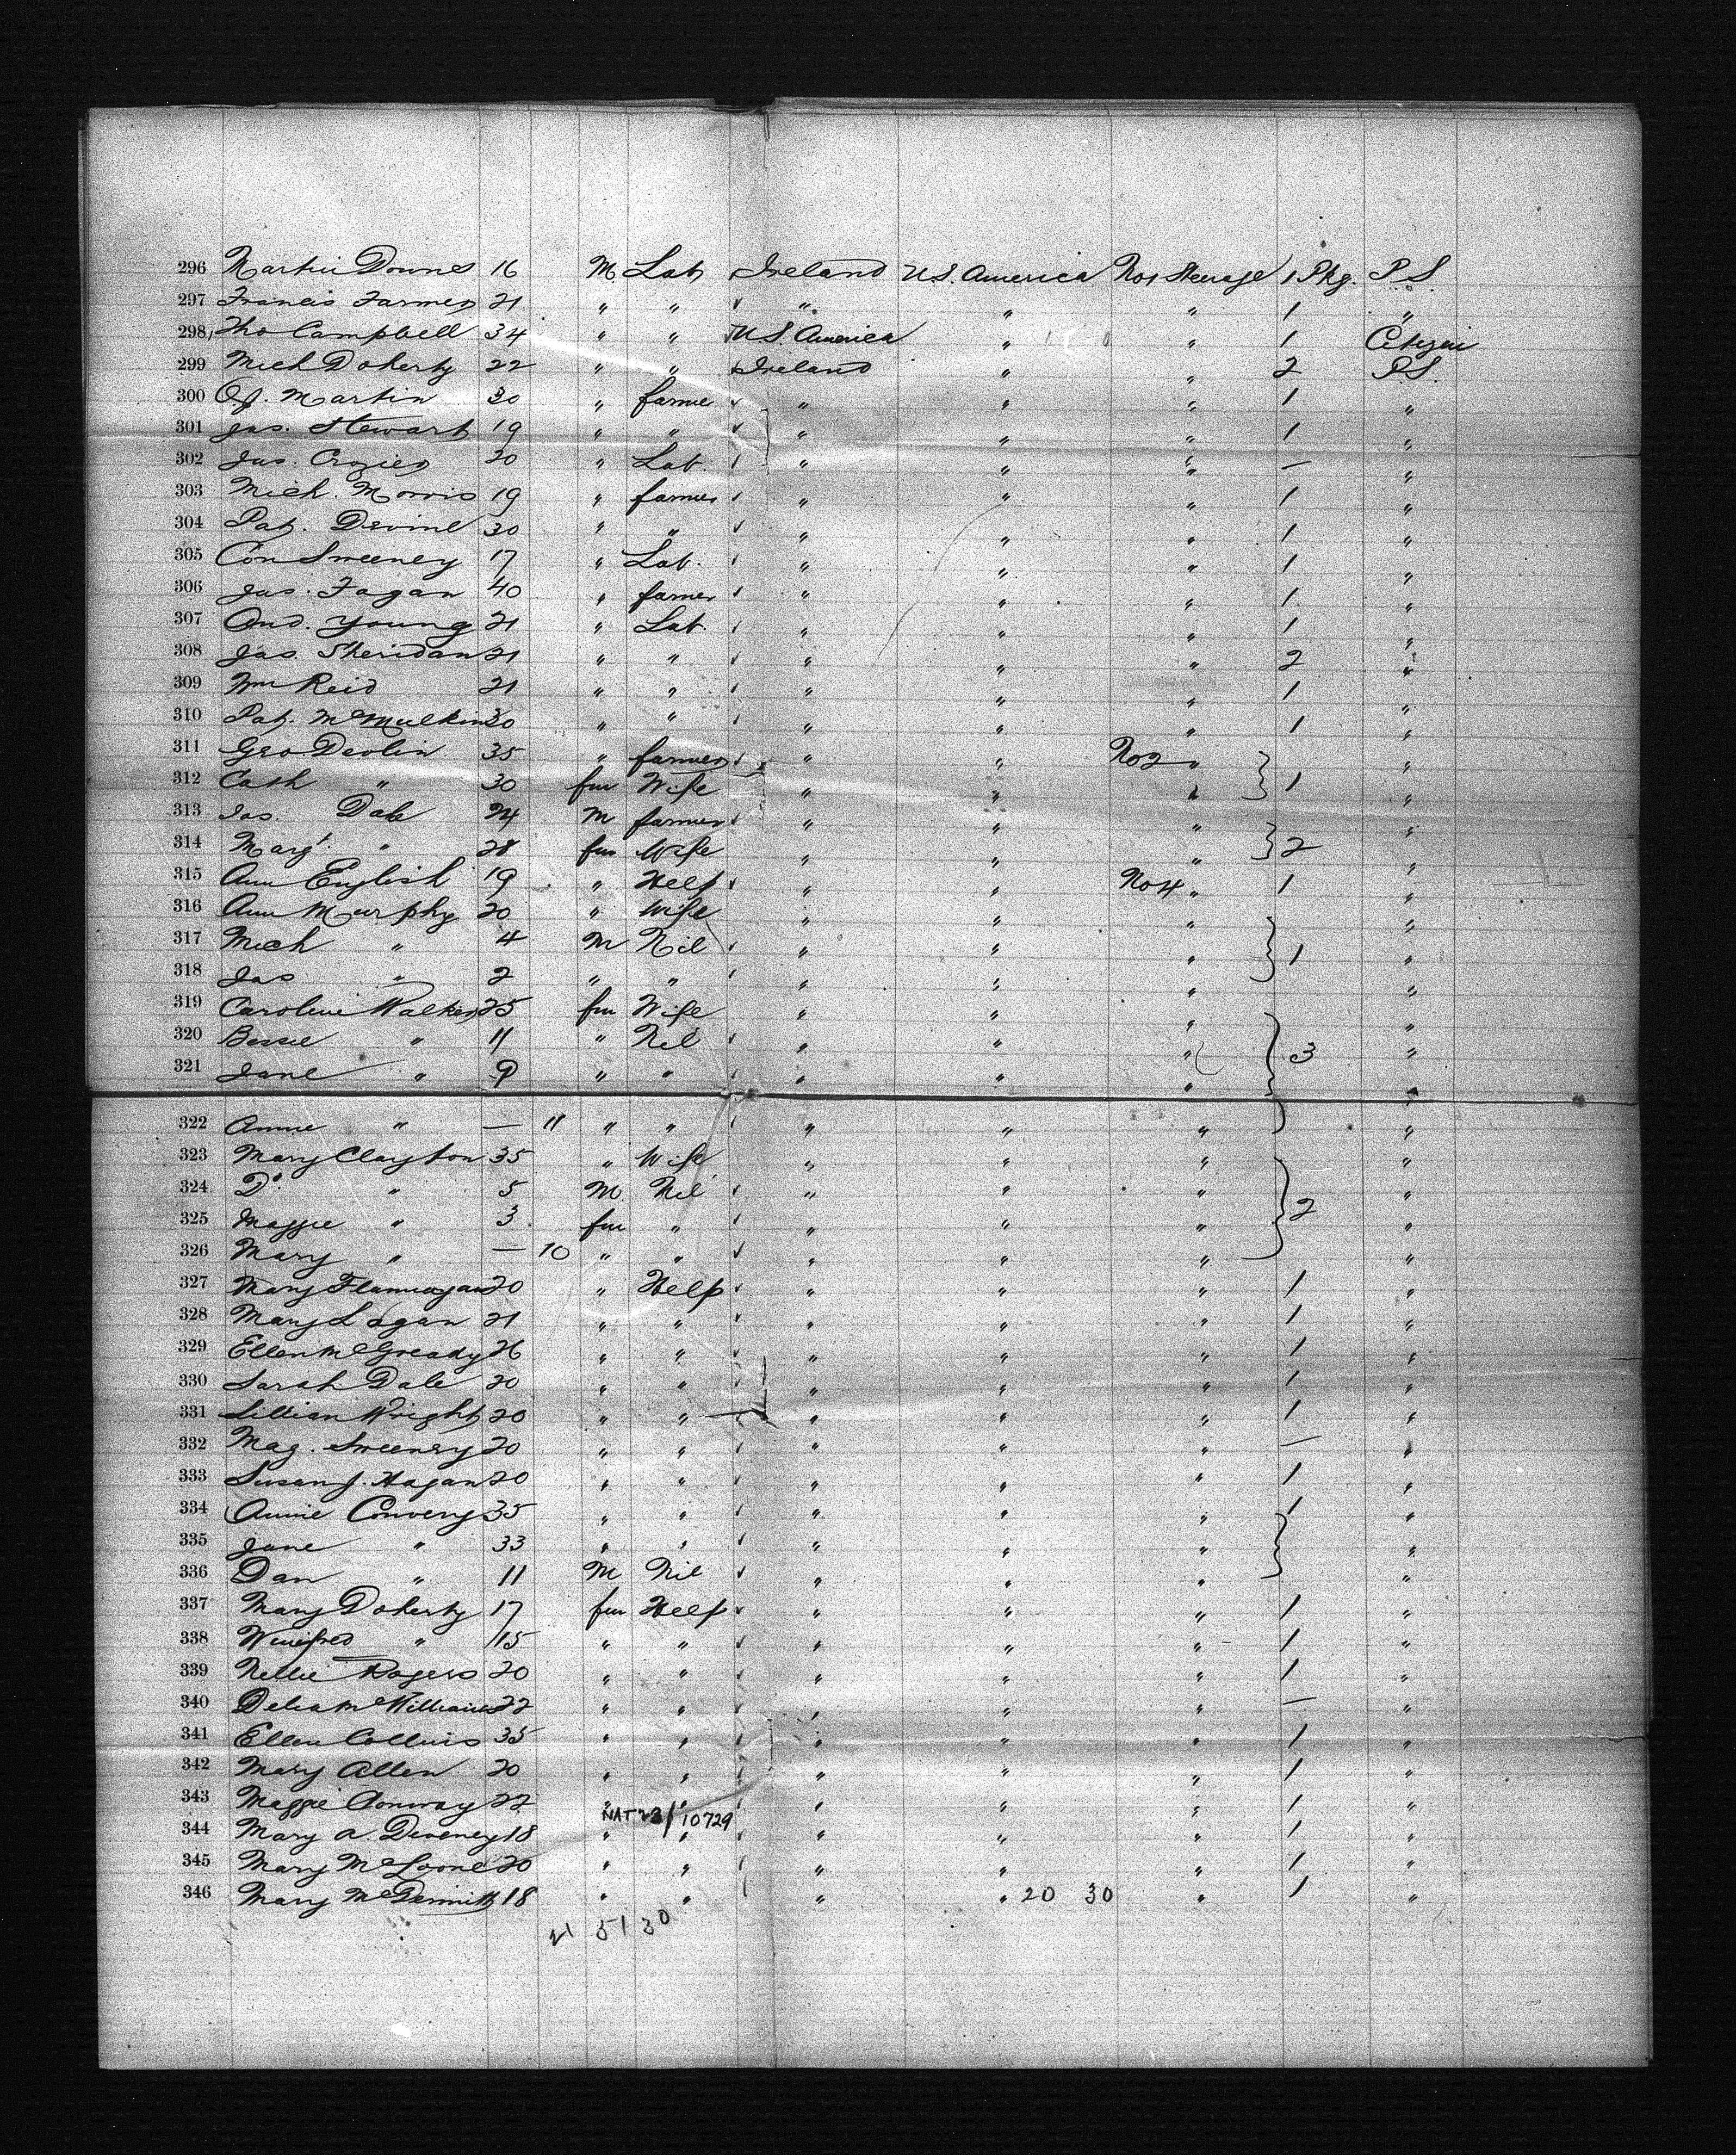 296 Martin Downes 16 M Lab Ireland U.S. America No 1 Steerage 1 Pkg. P.S.
297 Francis Farmer 21 " " " " " 1 "
298 Tho Campbell 34 " " U.S. America " " 1 Citizen
299 Mich Doherty 22 " " Ireland " " 2 P.S.
300 O.J. Martin 30 " farmer " " " 1 "
301 Jas. Stewart 19 " " " " " 1 "
302 Jas. Crozier 20 " Lab. " " " — "
303 Mich. Morris 19 " farmer " " " 1 "
304 Pat. Devine 30 " " " " " 1 "
305 Con Sweeney 17 " Lab. " " " 1 "
306 Jas. Fagan 40 " farmer " " " 1 "
307 And. Young 21 " Lab. " " " 1 "
308 Jas. Sheridan 21 " " " " " 2 "
309 Wm Reid 21 " " " " " 1 "
310 Pat. McMulkin 30 " " " " " 1 "
311 Geo Devlin 35 " farmer " " No 2 " "
312 Cath " 30 fm Wife " " " 1 "
313 Jas. Dale 24 M farmer " " " "
314 Margt " 28 fm Wife " " " 2 "
315 Ann English 19 " Help " " No 4 " 1 "
316 Ann Murphy 20 " Wife " " " "
317 Mich " 4 M Nil " " " 1 "
318 Jas " 2 " " " " " "
319 Caroline Walker 25 fm Wife " " " "
320 Bessie " 11 " Nil " " " 3 "
321 Jane " 9 " " " " " "
322 Annie " — 11 " " " " " "
323 Mary Clayton 35 " Wife " " " "
324 D. " 5 M Nil " " " "
325 Maggie " 3 fm " " " " 2 "
326 Mary " — 10 " " " " " "
327 Mary Flannagan 20 " Help " " " 1 "
328 Mary Logan 21 " " " " " 1 "
329 Ellen McGready 26 " " " " " 1 "
330 Sarah Dale 20 " " " " " 1 "
331 Lillian Wright 20 " " " " " 1 "
332 Mag. Sweeney 20 " " " " " — "
333 Susan J. Hagan 20 " " " " " 1 "
334 Annie Convery 35 " " " " " 1 "
335 Jane " 33 " " " " " "
336 Dan " 11 M Nil " " " "
337 Mary Doherty 17 fm Help " " " 1 "
338 Winifred " 15 " " " " " 1 "
339 Nellie Rogers 20 " " " " " 1 "
340 Delia McWilliams 22 " " " " " — "
341 Ellen Collins 35 " " " " " 1 "
342 Mary Allen 20 " " " " " 1 "
343 Maggie Conway 22 " " " " " 1 "
NAT 23/10729
344 Mary A. Deveney 18 " " " " " 1 "
345 Mary McLoone 20 " " " " " 1 "
346 Mary McDermitt 18 " " " " 20 30 " 1 "
21 51 30